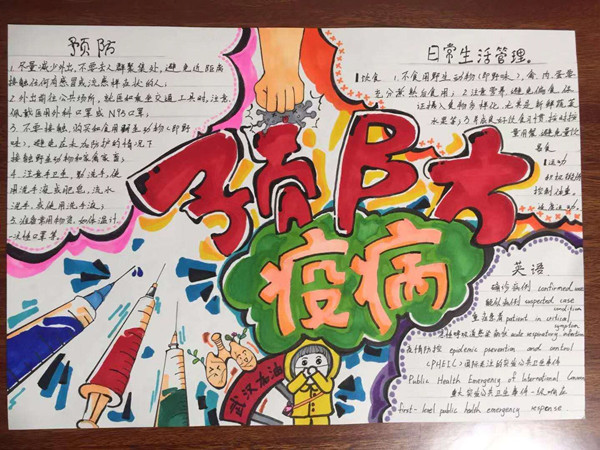 预防
1.尽量减少外出,不要去人群聚集处,避免近距离
接触任何有感冒或流感样症状的人。
2.外出前往公共场所,就医和乘坐交通工具时,注意
佩戴医用外科口罩或N95口罩;
3.不要接触,购买和食用野生动物(即野
味),避免在未加防护的情况下
接触野生动物和家禽家畜;
4.注意手卫生,勤洗手,使
用洗手液或肥皂,流水
洗手,或使用洗手液;
5.准备常用物资,如体温计、
一次性口罩等。
预防
疫病
武汉加油
日常生活管理。
1饮食 1.不食用野生动物(即野味),禽、肉、蛋要
充分煮熟后食用;2.注意营养,避免偏食,保
证摄入食物多样化,尤其是新鲜蔬菜
水果等;3.养成良好饮食习惯,按时按
量用餐,避免暴饮
暴食
运动
积极锻炼
控制体重。
适度运动。
英语
确诊病例 confirmed
疑似病例 suspected case
condition
重症患者 patient in critical
急性呼吸道感染病状 acute respiratory infection
疫情防控 epidemic prevention and control
(PHEIC)国际关注的突发公共卫生事件
Public Health Emergency of International
重大突发公共卫生事件一级响应
first-level public health emergency response